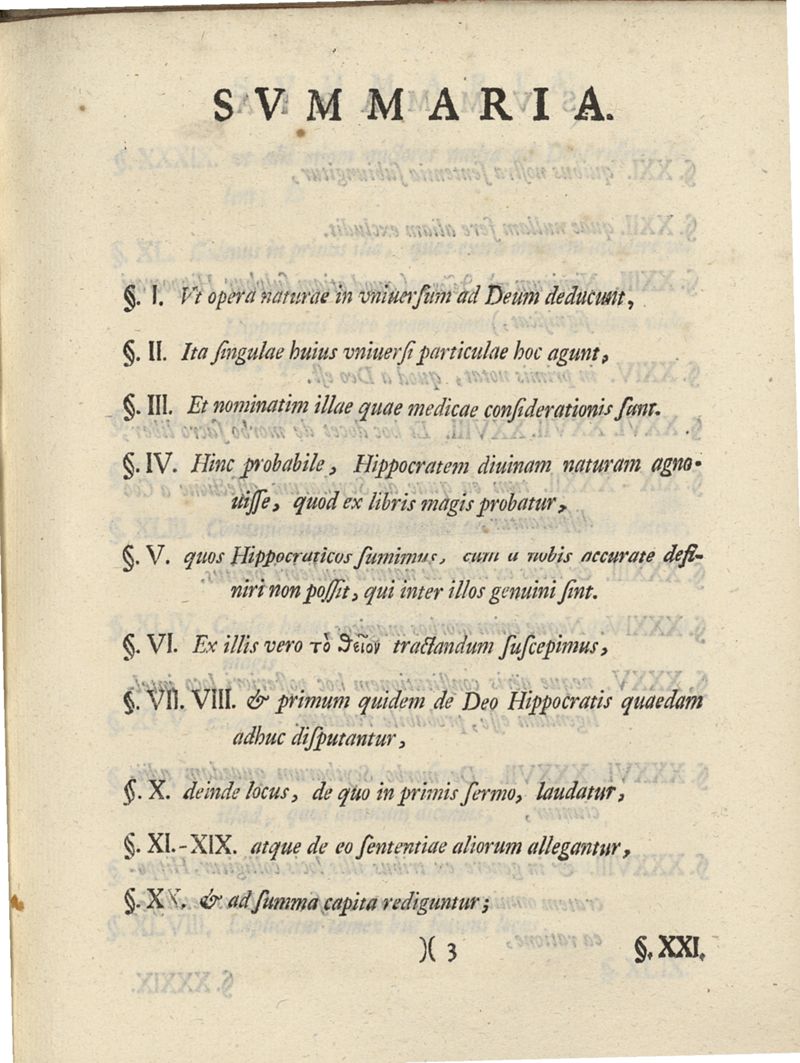 SVMMARIA.
§. I. Vt opera naturae in vniuerſum ad Deum deducunt,
§. II. Ita ſingulae huius vniuerſi particulae hoc agunt,
§. III. Et nominatim illae quae medicae conſiderationis ſunt.
§. IV. Hinc probabile, Hippocratem diuinam naturam agno-
uiſſe, quod ex libris magis probatur,
§. V. quos Hippocraticos ſumimus, cum a nobis accurate defi-
niri non poſſit, qui inter illos genuini ſint.
§. VI. Ex illis vero τὸ θεῖον tractandum ſuſcepimus,
§. VII. VIII. & primum quidem de Deo Hippocratis quaedam
adhuc diſputantur,
§. X. deinde locus, de quo in primis ſermo, laudatur,
§. XI.-XIX. atque de eo ſententiae aliorum allegantur,
§. XX. & ad ſumma capita rediguntur;
)( 3 §. XXI.